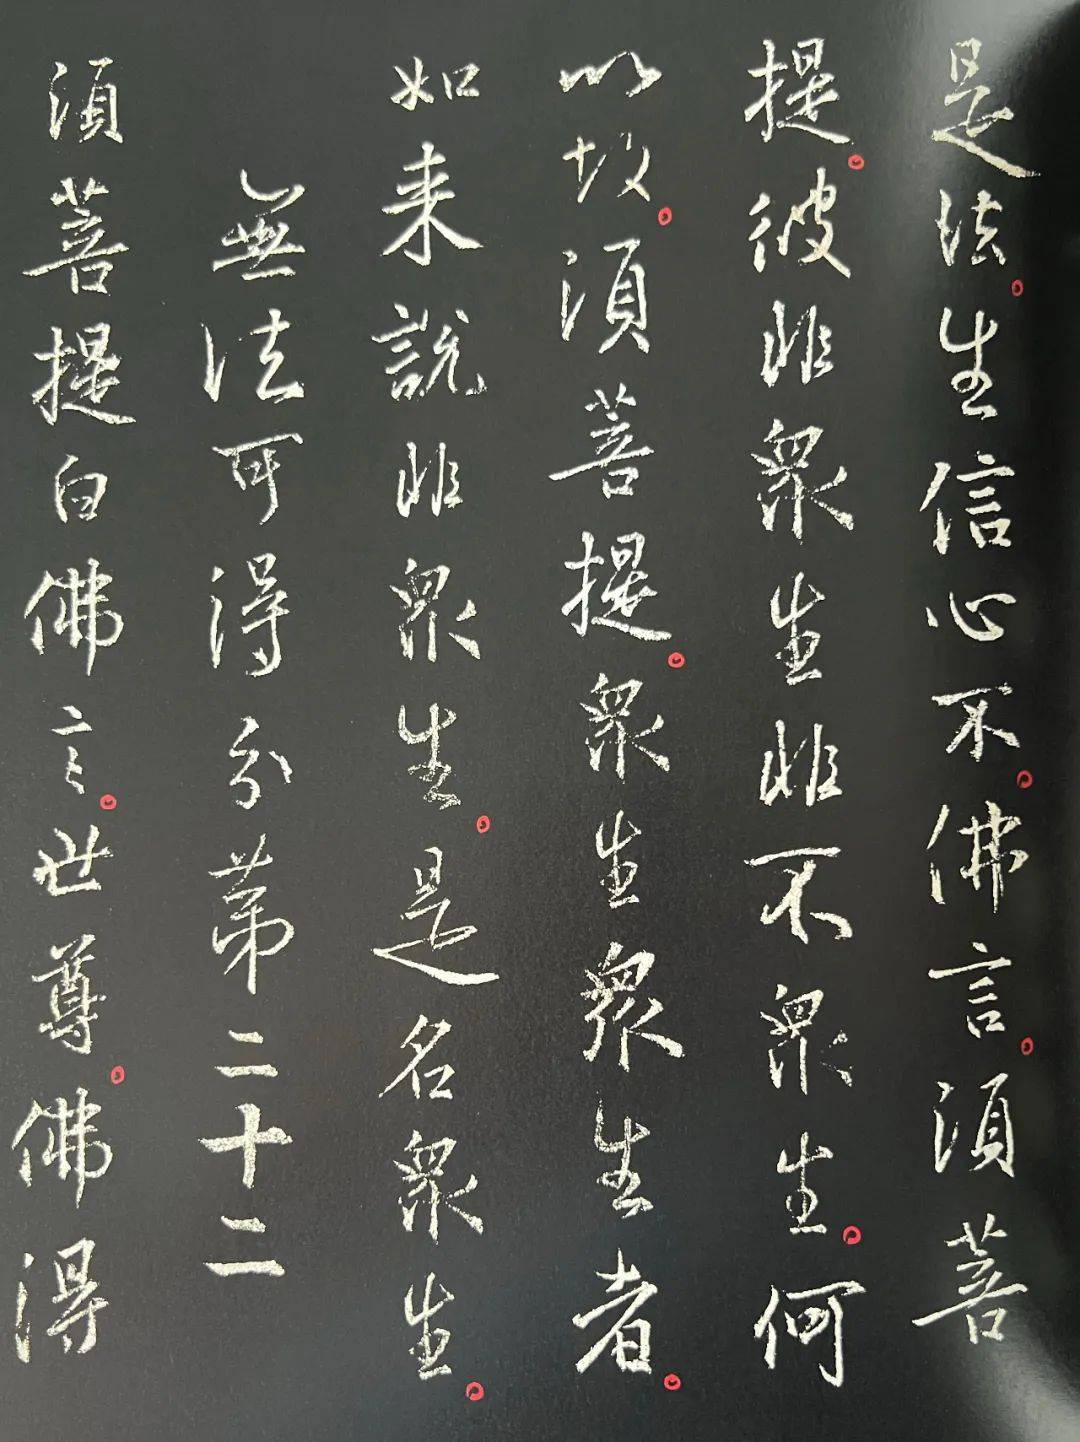 是法。生信心不。佛言。須菩
提。彼非眾生非不眾生。何
以故。須菩提。眾生眾生者。
如来說非眾生。是名眾生。
無法可得分第二十二
須菩提白佛言。世尊。佛得